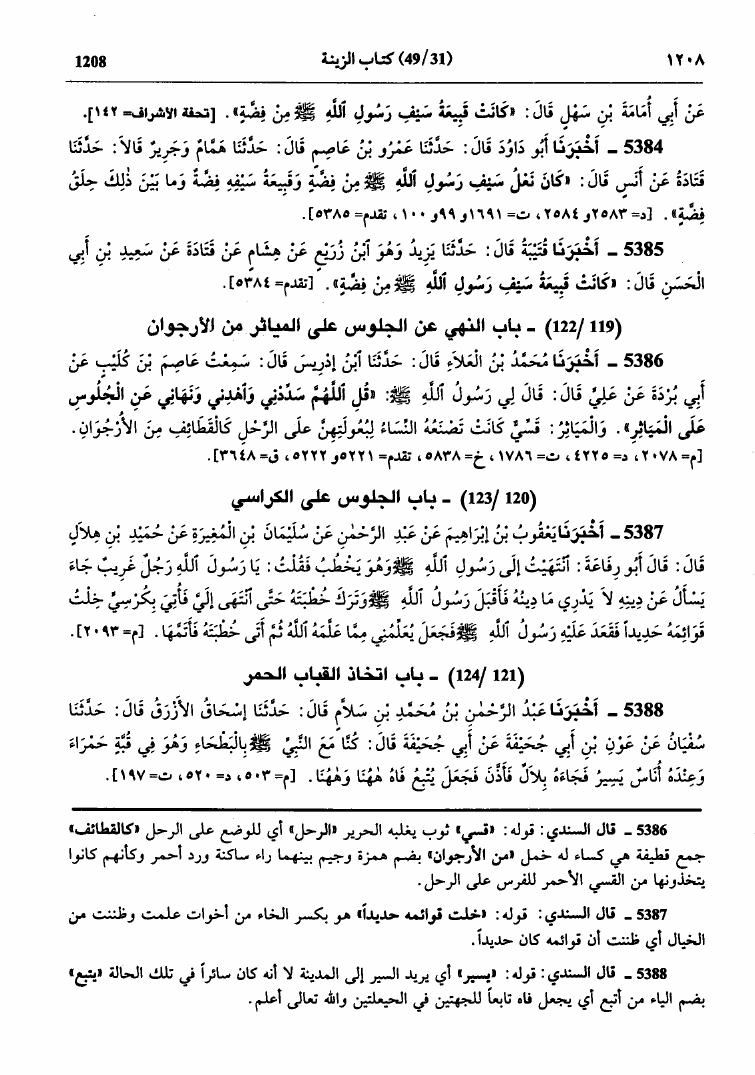 ١٢٠٨ (49/31) كتاب الزينة 1208
عَنْ أَبِي أُمَامَةَ بْنِ سَهْلٍ قَالَ: «كَانَتْ قَبِيعَةُ سَيْفِ رَسُولِ اللَّهِ ﷺ مِنْ فِضَّةٍ». [تحفة الأشراف= ١٤٢].
5384 ـ أَخْبَرَنَا أَبُو دَاوُدَ قَالَ: حَدَّثَنَا عَمْرُو بْنُ عَاصِمٍ قَالَ: حَدَّثَنَا هَمَّامٌ وَجَرِيرٌ قَالاَ: حَدَّثَنَا
قَتَادَةُ عَنْ أَنَسٍ قَالَ: «كَانَ نَعْلُ سَيْفِ رَسُولِ اللَّهِ ﷺ مِنْ فِضَّةٍ وَقَبِيعَةُ سَيْفِهِ فِضَّةٌ وَمَا بَيْنَ ذٰلِكَ حِلَقُ
فِضَّةٍ». [د= ٢٥٨٣و ٢٥٨٤، ت= ١٦٩١و ٩٩و ١٠٠، تقدم= ٥٣٨٥].
5385 ـ أَخْبَرَنَا قُتَيْبَةُ قَالَ: حَدَّثَنَا يَزِيدُ وَهُوَ ابْنُ زُرَيْعٍ عَنْ هِشَامٍ عَنْ قَتَادَةَ عَنْ سَعِيدِ بْنِ أَبِي
الْحَسَنِ قَالَ: «كَانَتْ قَبِيعَةُ سَيْفِ رَسُولِ اللَّهِ ﷺ مِنْ فِضَّةٍ». [تقدم= ٥٣٨٤].
(122/ 119) ـ باب النهي عن الجلوس على المياثر من الأرجوان
5386 ـ أَخْبَرَنَا مُحَمَّدُ بْنُ الْعَلاَءِ قَالَ: حَدَّثَنَا ابْنُ إِدْرِيسَ قَالَ: سَمِعْتُ عَاصِمَ بْنَ كُلَيْبٍ عَنْ
أَبِي بُرْدَةَ عَنْ عَلِيٍّ قَالَ: قَالَ لِي رَسُولُ اللَّهِ ﷺ: «قُلِ اللَّهُمَّ سَدِّدْنِي وَاهْدِنِي وَنَهَانِي عَنِ الْجُلُوسِ
عَلَى الْمَيَاثِرِ». وَالْمَيَاثِرُ: قَسِّيٌّ كَانَتْ تَصْنَعُهُ النِّسَاءُ لِبُعُولَتِهِنَّ عَلَى الرَّحْلِ كَالْقَطَائِفِ مِنَ الأُرْجُوَانِ.
[م= ٢٠٧٨، د= ٤٢٢٥، ت= ١٧٨٦، خ= ٥٨٣٨، تقدم= ٥٢٢١و ٥٢٢٢، ق= ٣٦٤٨].
(123/ 120) ـ باب الجلوس على الكراسي
5387 ـ أَخْبَرَنَا يَعْقُوبُ بْنُ إِبْرَاهِيمَ عَنْ عَبْدِ الرَّحْمٰنِ عَنْ سُلَيْمَانَ بْنِ الْمُغِيرَةِ عَنْ حُمَيْدِ بْنِ هِلاَلٍ
قَالَ: قَالَ أَبُو رِفَاعَةَ: انْتَهَيْتُ إِلَى رَسُولِ اللَّهِ ﷺ وَهُوَ يَخْطُبُ فَقُلْتُ: يَا رَسُولَ اللَّهِ رَجُلٌ غَرِيبٌ جَاءَ
يَسْأَلُ عَنْ دِينِهِ لاَ يَدْرِي مَا دِينُهُ فَأَقْبَلَ رَسُولُ اللَّهِ ﷺ وَتَرَكَ خُطْبَتَهُ حَتَّى انْتَهَى إِلَيَّ فَأُتِيَ بِكُرْسِيٍّ خِلْتُ
قَوَائِمَهُ حَدِيداً فَقَعَدَ عَلَيْهِ رَسُولُ اللَّهِ ﷺ فَجَعَلَ يُعَلِّمُنِي مِمَّا عَلَّمَهُ اللَّهُ ثُمَّ أَتَى خُطْبَتَهُ فَأَتَمَّهَا. [م= ٢٠٩٣].
(124/ 121) ـ باب اتخاذ القباب الحمر
5388 ـ أَخْبَرَنَا عَبْدُ الرَّحْمٰنِ بْنُ مُحَمَّدِ بْنِ سَلاَّمٍ قَالَ: حَدَّثَنَا إِسْحَاقُ الأَزْرَقُ قَالَ: حَدَّثَنَا
سُفْيَانُ عَنْ عَوْنِ بْنِ أَبِي جُحَيْفَةَ عَنْ أَبِي جُحَيْفَةَ قَالَ: كُنَّا مَعَ النَّبِيِّ ﷺ بِالْبَطْحَاءِ وَهُوَ فِي قُبَّةٍ حَمْرَاءَ
وَعِنْدَهُ أُنَاسٌ يَسِيرُ فَجَاءَهُ بِلاَلٌ فَأَذَّنَ فَجَعَلَ يُتْبِعُ فَاهُ هٰهُنَا وَهٰهُنَا. [م= ٥٠٣، د= ٥٢٠، ت= ١٩٧].
5386 ـ قال السندي: قوله: «قسي» ثوب يغلبه الحرير «الرحل» أي للوضع على الرحل «كالقطائف»
جمع قطيفة هي كساء له خمل «من الأرجوان» بضم همزة وجيم بينهما راء ساكنة ورد أحمر وكأنهم كانوا
يتخذونها من القسي الأحمر للفرس على الرحل.
5387 ـ قال السندي: قوله: «خلت قوائمه حديداً» هو بكسر الخاء من أخوات علمت وظننت من
الخيال أي ظننت أن قوائمه كان حديداً.
5388 ـ قال السندي: قوله: «يسير» أي يريد السير إلى المدينة لا أنه كان سائراً في تلك الحالة «يتبع»
بضم الياء من أتبع أي يجعل فاه تابعاً للجهتين في الحيعلتين والله تعالى أعلم.